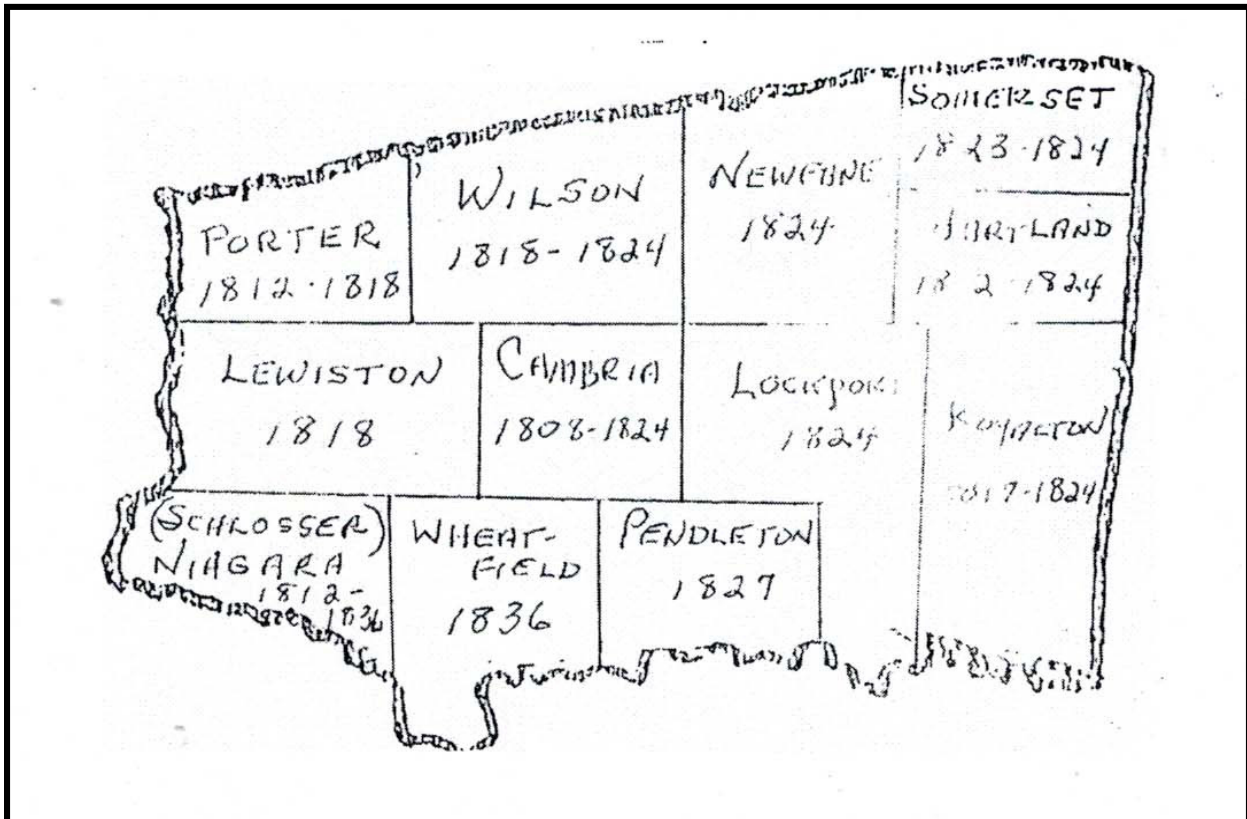 SOMERSET
1823-1824
PORTER
1812-1818
WILSON
1818-1824
NEWFANE
1824
HARTLAND
1824
LEWISTON
1818
CAMBRIA
1808-1824
LOCKPORT
1824
ROYALTON
1824
(SCHLOSSER)
NIAGARA
1812-
1836
WHEAT-
FIELD
1836
PENDLETON
1827